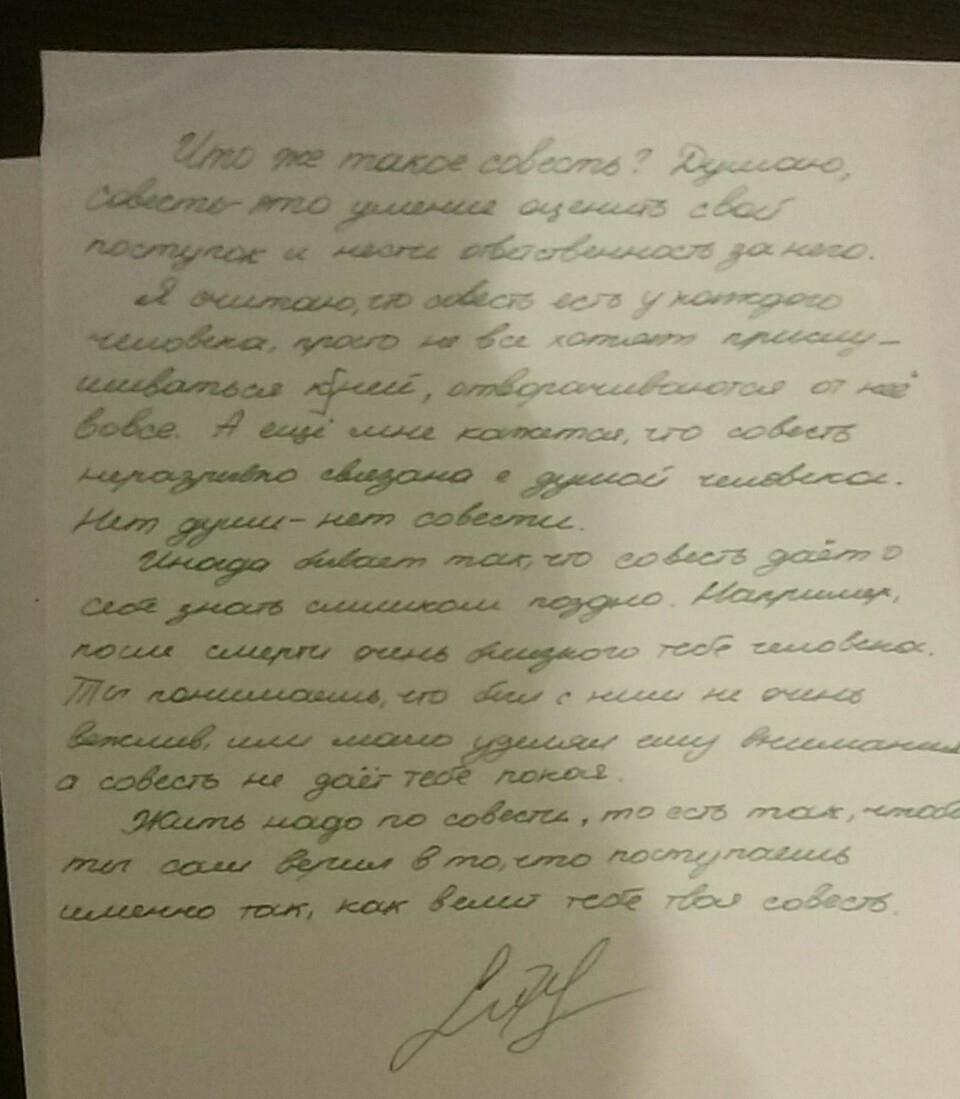 Что же такое совесть? Думаю,
совесть- это умение оценить свой
поступок и нести ответственность за него.
Я считаю, что совесть есть у каждого
человека, просто не все хотят прислу-
шиваться к ней, отворачиваются от неё
вовсе. А ещё мне кажется, что совесть
неразрывно связана с душой человека.
Нет души - нет совести.
Иногда бывает так, что совесть даёт о
себе знать слишком поздно. Например,
после смерти очень близкого тебе человека.
Ты понимаешь, что был с ним не очень
вежлив, или мало уделял ему внимания
а совесть не даёт тебе покоя.
Жить надо по совести, то есть так, чтобы
ты сам верил в то, что поступаешь
именно так, как велит тебе твоя совесть.